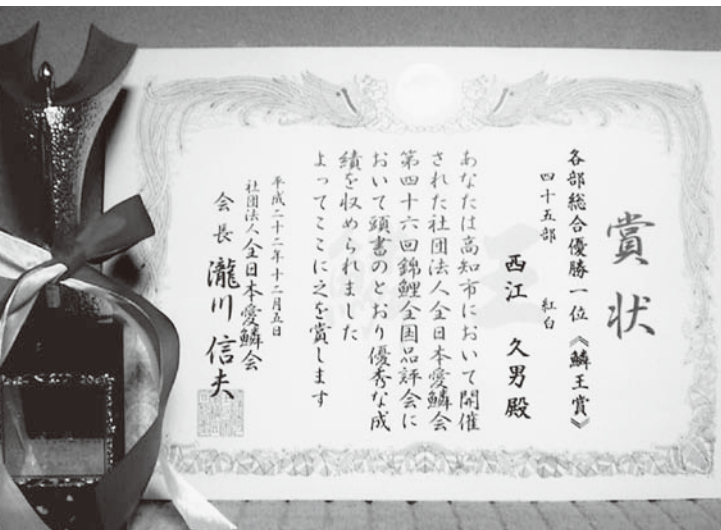 賞状
各部総合優勝一位《鱗王賞》
四十五部 紅白
西江 久男殿
あなたは高知市において開催
された社団法人全日本愛鱗会
第四十六回錦鯉全国品評会に
おいて頭書のとおり優秀な成
績を収められました
よってここに之を賞します
平成二十二年十二月五日
社団法人全日本愛鱗会
会長 瀧川信夫